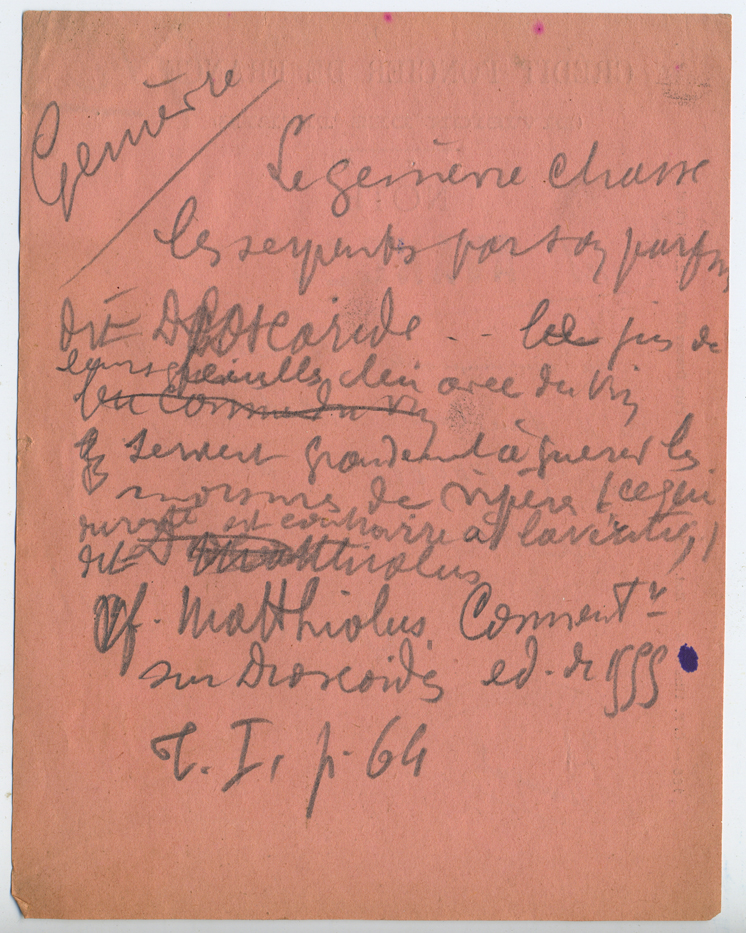 Genièvre
Le genièvre chasse
les serpents par son parfum
dit Dioscoride .. le jus de
leurs feuilles bu avec du vin
bu comme du vin
servent grandement à guérir les
morsures de vipère (ce qui
est contraire à la vérité,)
dit Matthiolus
Cf. Matthiolus, Comment^r
sur Dioscoride ed. de 1555
T. I, p. 64